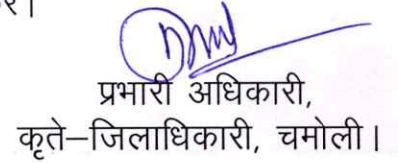 प्रभारी अधिकारी,
कृते–जिलाधिकारी, चमोली।